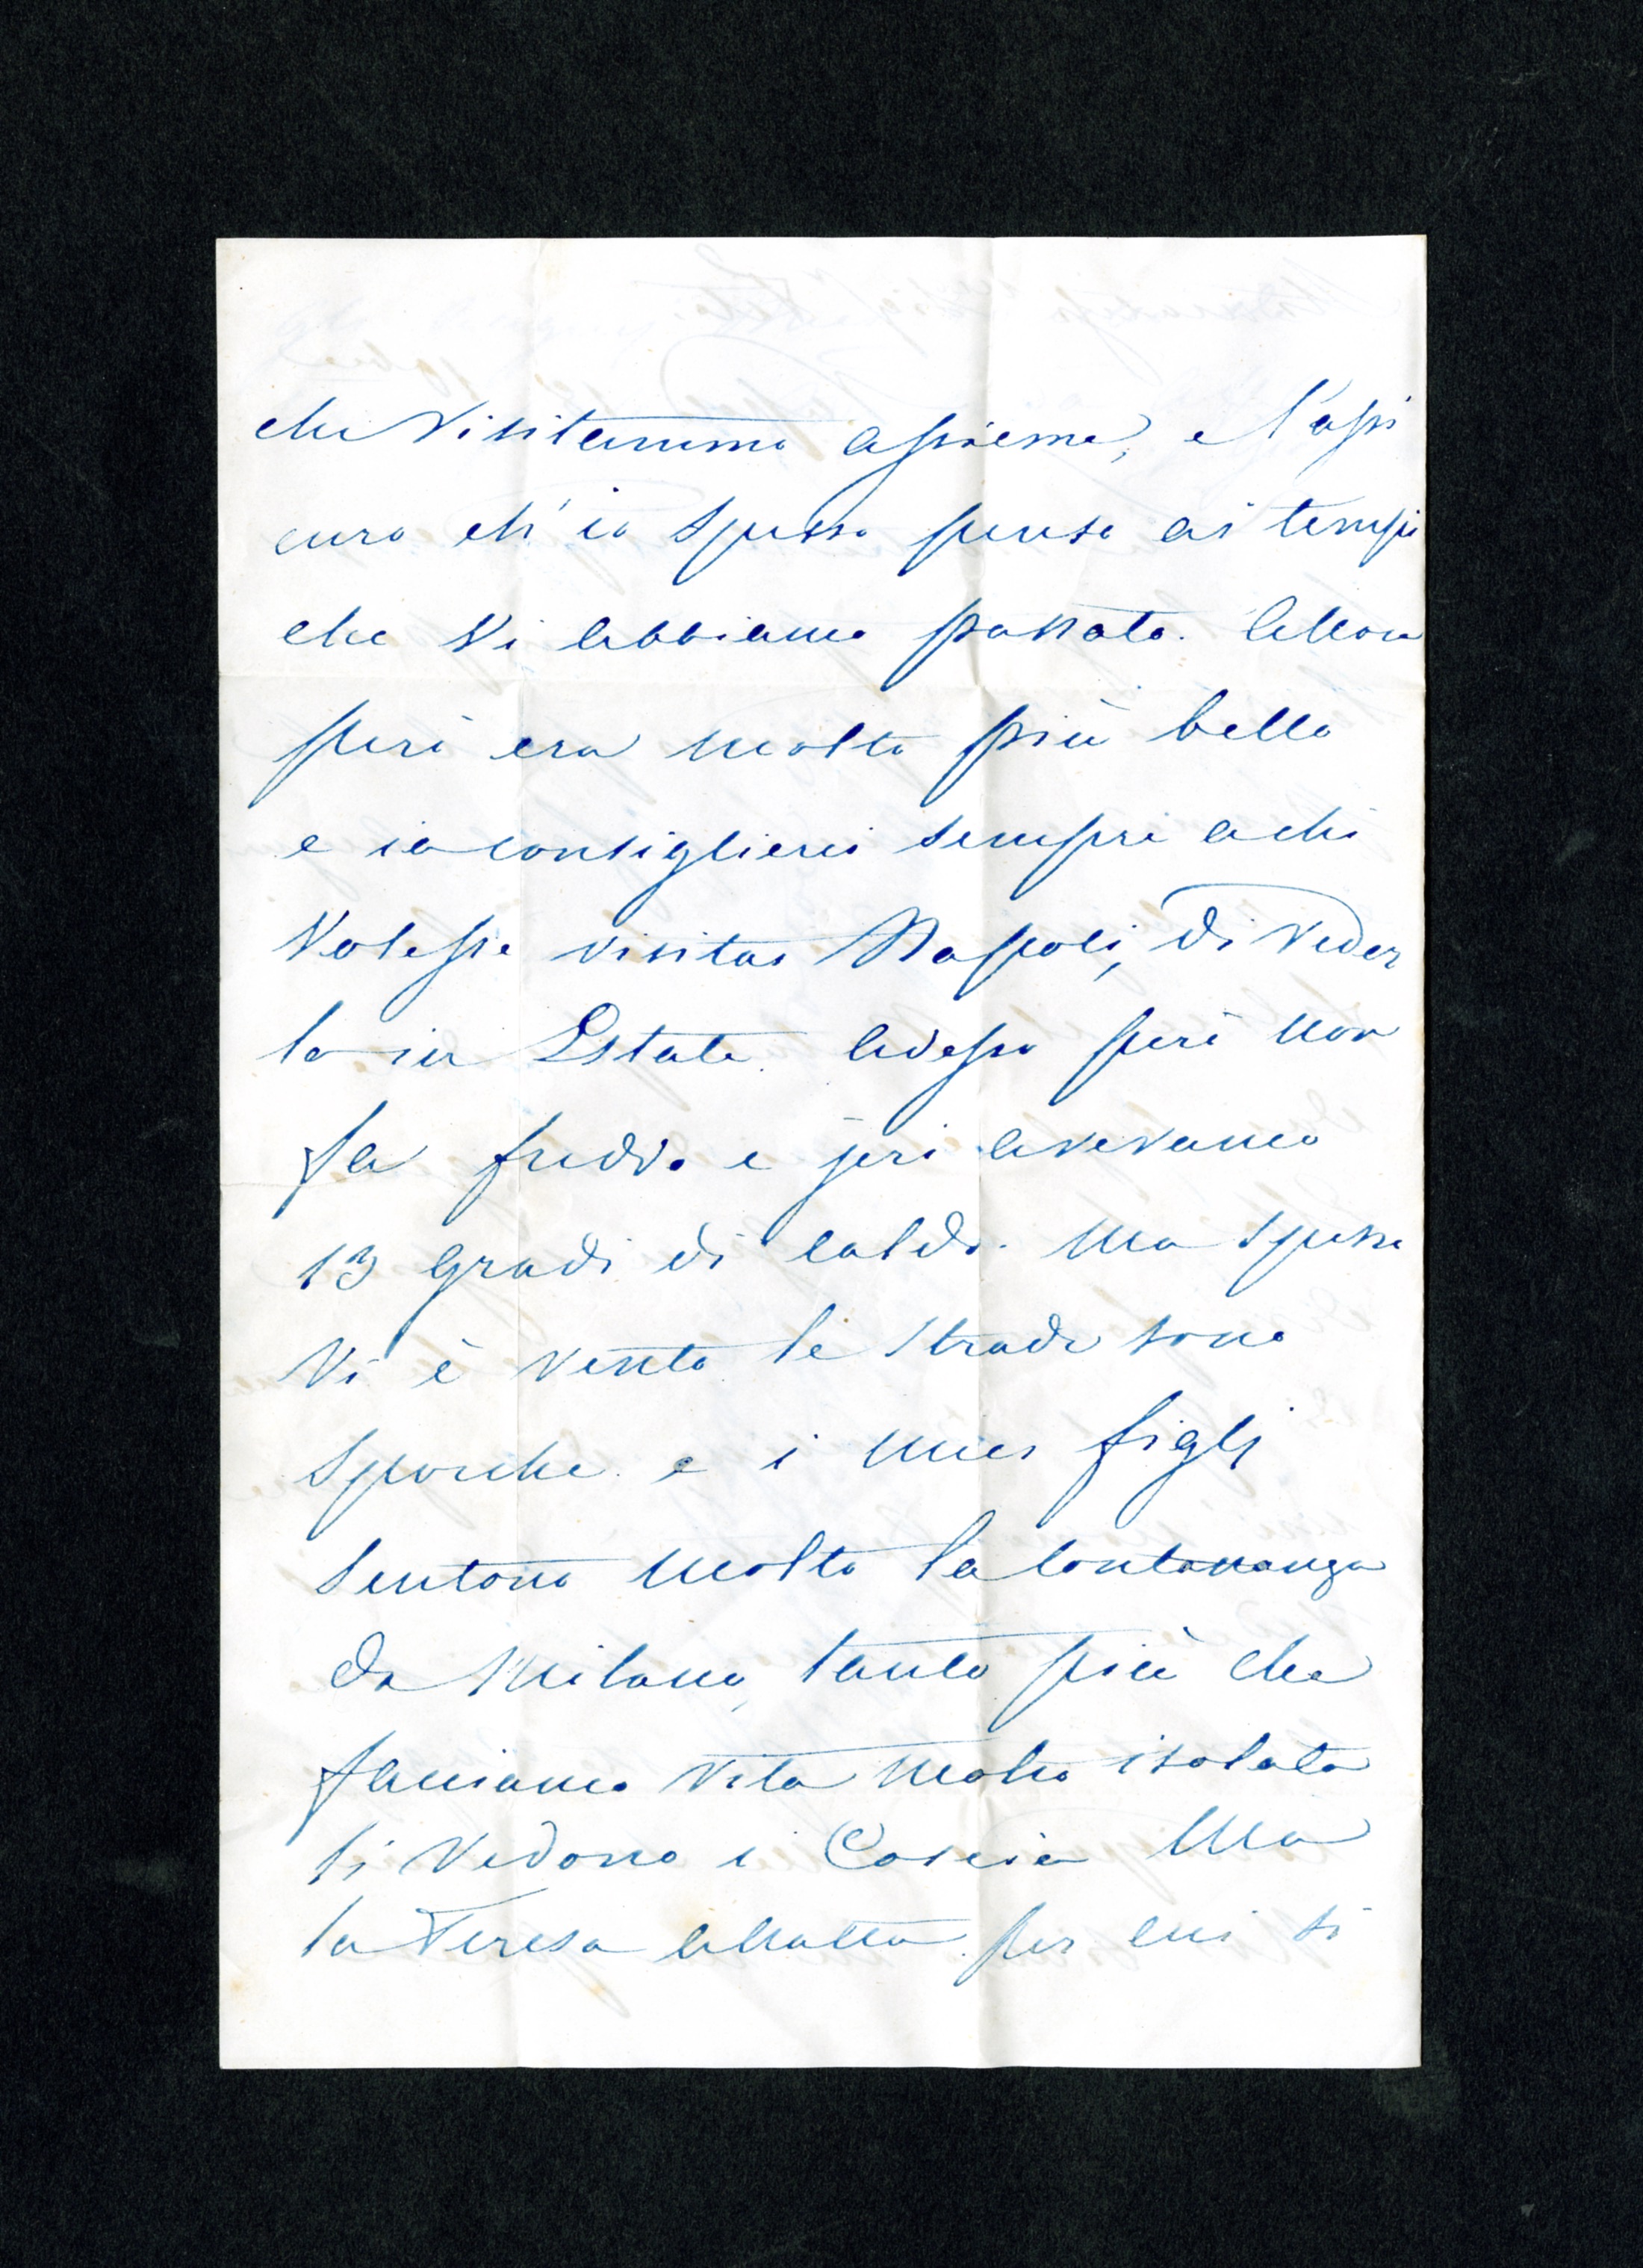 che visitammo assieme, e l'assi
curo ch'io spesso penso ai tempi
che vi abbiamo passato. Allora
però era molto più bello
e io consiglierei sempre a chi
volesse visitar Napoli, di veder
la in Estate. Adesso però non
fa freddo e jeri avevamo
13 gradi di caldo. Ma spesso
vi è vento le strade sono
sporche e i miei figlj
sentono molto la lontananza
da Milano, tanto più che
facciamo vita molto isolata
Si vedono i Coscia Ma
la Teresa allatta per cui si